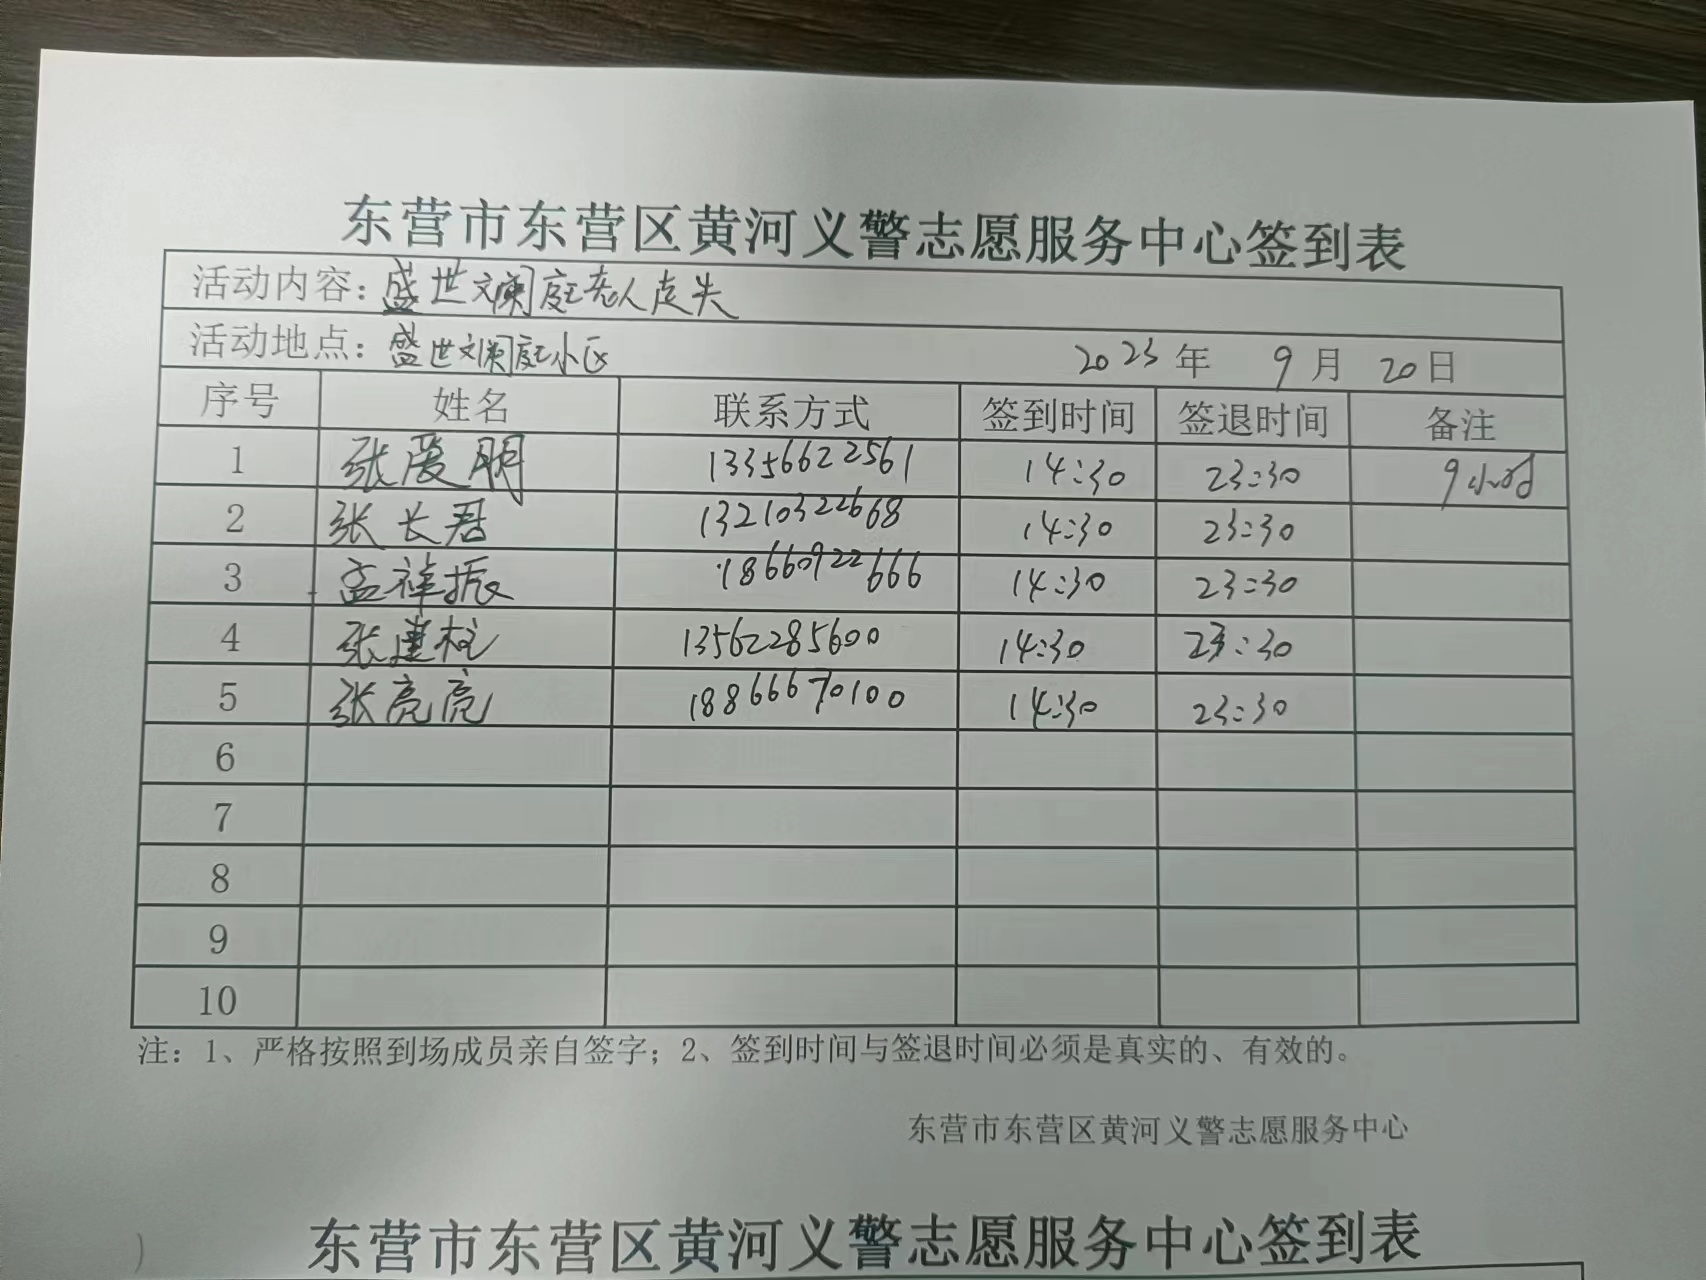 东营市东营区黄河义警志愿服务中心签到表
活动内容：盛世文澜庭老人走失
活动地点：盛世文澜庭小区 2023年 9月 20日
序号 姓名 联系方式 签到时间 签退时间 备注
1 张爱朋 13356622561 14:30 23:30 9小时
2 张长君 13210322668 14:30 23:30
3 孟祥振 18660922666 14:30 23:30
4 张建柱 13562285600 14:30 23:30
5 张亮亮 18866670100 14:30 23:30
6
7
8
9
10
注：1、严格按照到场成员亲自签字；2、签到时间与签退时间必须是真实的、有效的。
东营市东营区黄河义警志愿服务中心
东营市东营区黄河义警志愿服务中心签到表